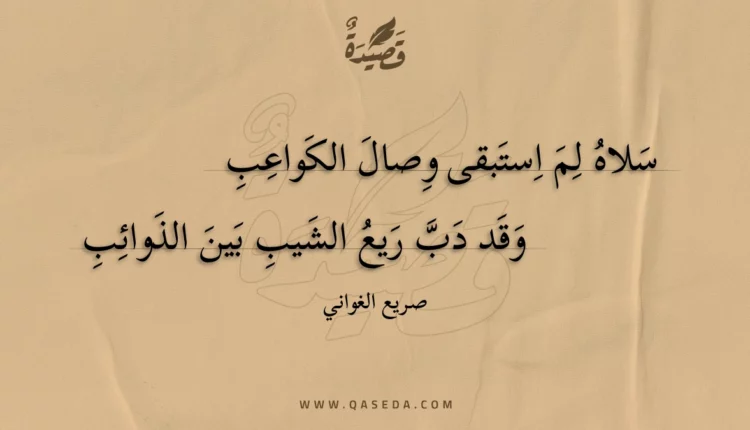 قَصِيدَةٌ
سَلاهُ لِمَ اِستَبقى وِصالَ الكَواعِبِ
وَقَد دَبَّ رَيعُ الشَيبِ بَينَ الذَوائِبِ
صريع الغواني
WWW.QASEDA.COM